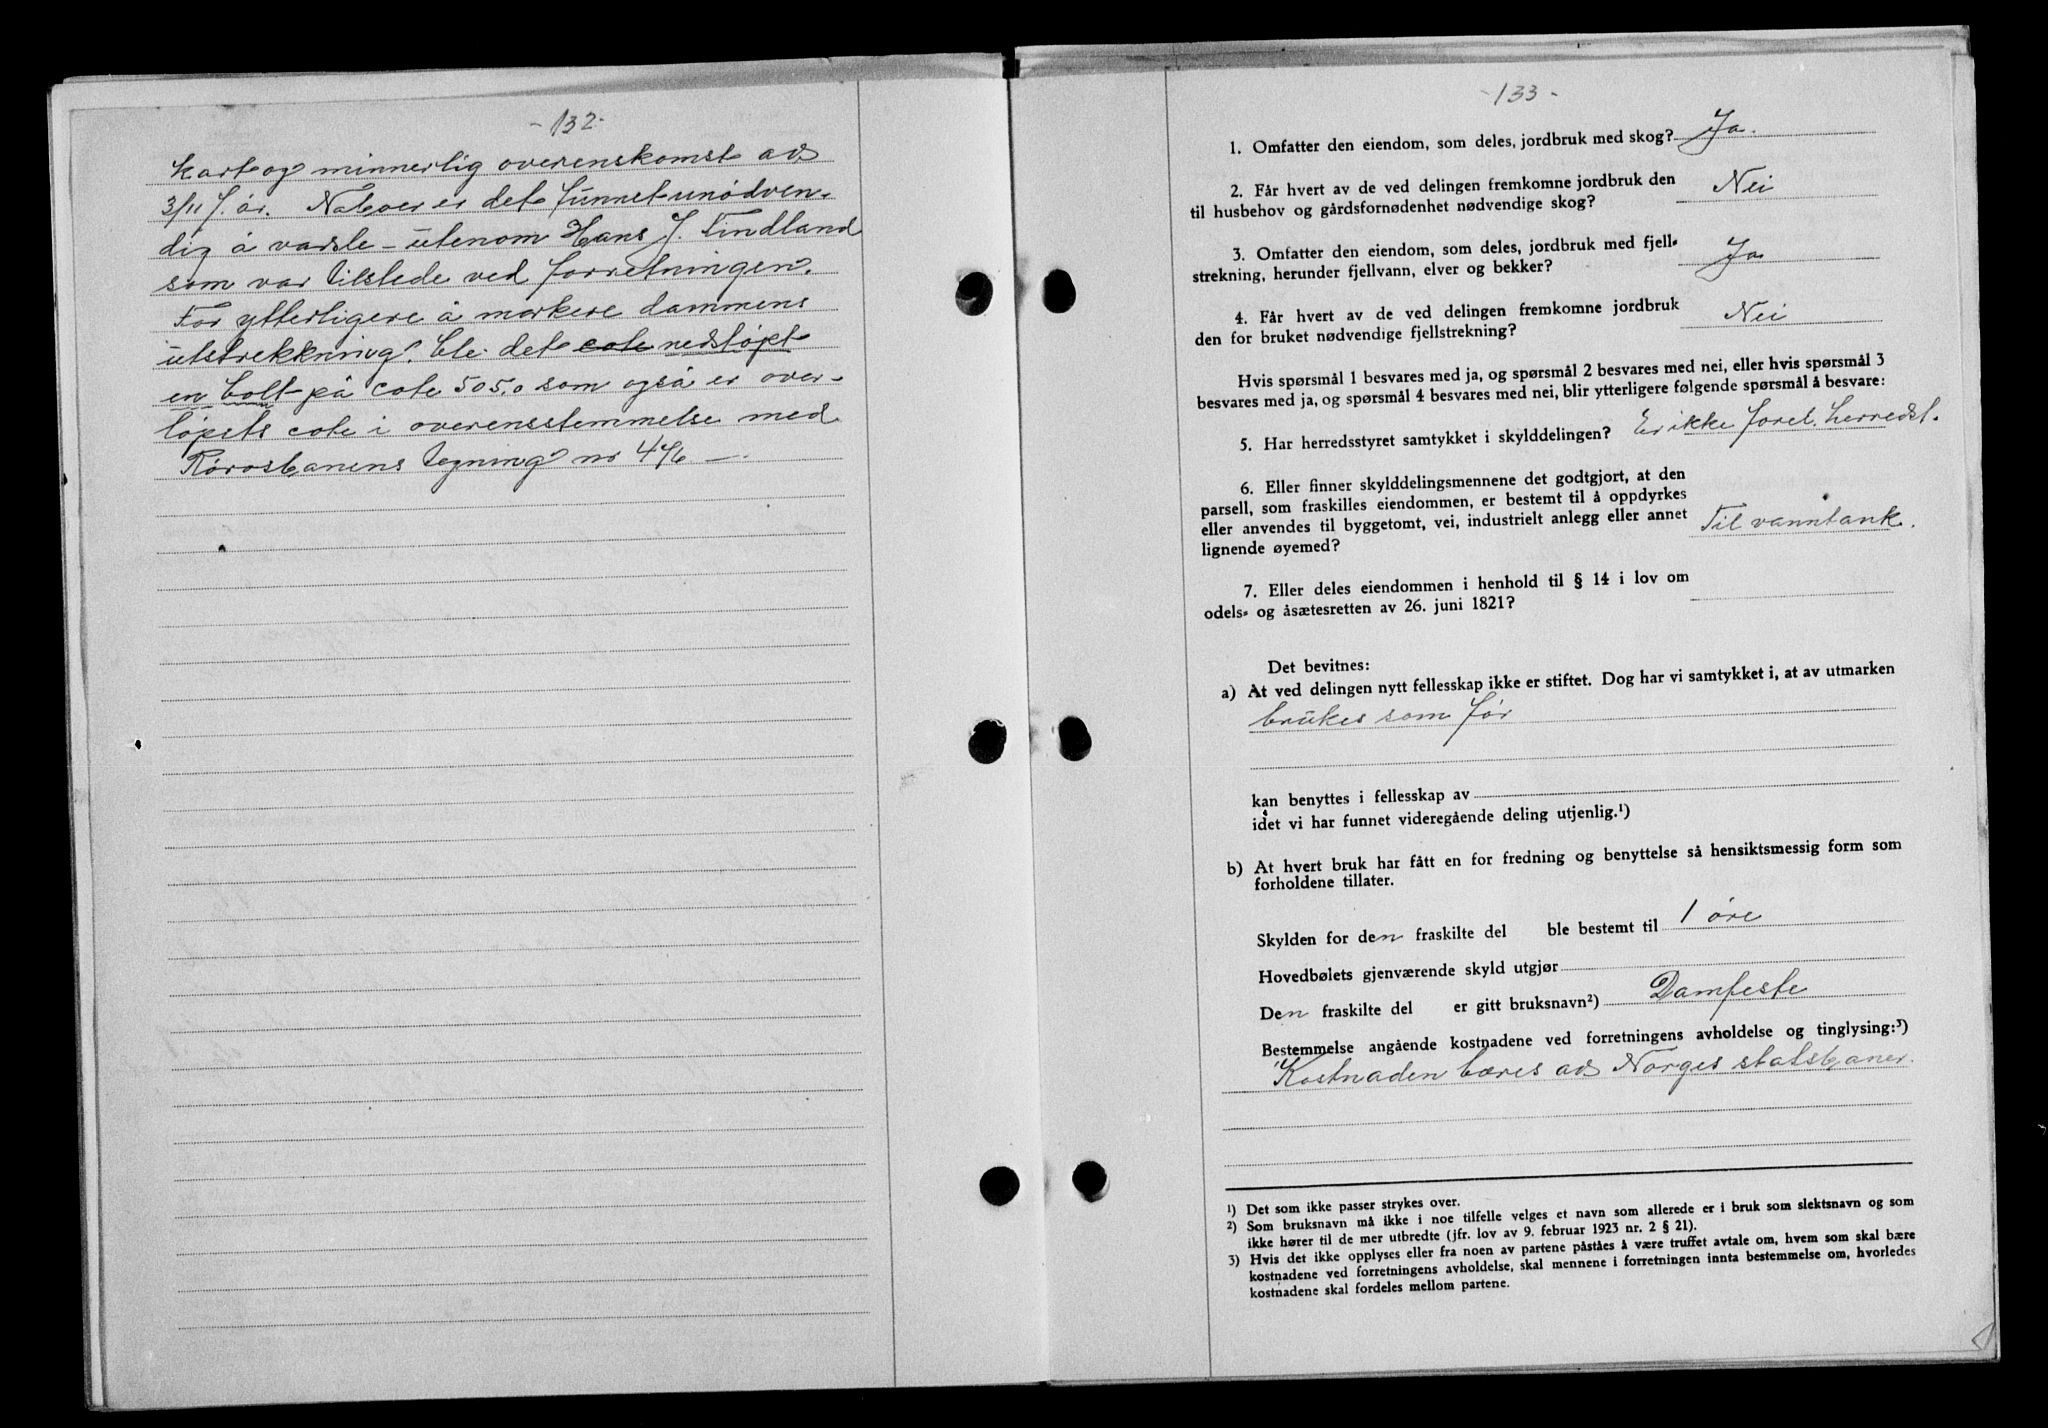 - 132 -
Kart og minnerlig overenskomst av
3/11 f. år. Naboer er det funnet unødven-
dig å varsle - utenom Hans J. Tindland
som var tilstede ved forretningen.
For ytterligere å markere dammens
utstrekkning. ble det cote nedstøpt
en bolt på cote 505,0 som også er over-
løpets cote i overensstemmelse med
Rørosbanens tegning nr 476 —.
- 133 -
1. Omfatter den eiendom, som deles, jordbruk med skog? Ja.
2. Får hvert av de ved delingen fremkomne jordbruk den
til husbehov og gårdsfornødenhet nødvendige skog? Nei
3. Omfatter den eiendom, som deles, jordbruk med fjell-
strekning, herunder fjellvann, elver og bekker? Ja
4. Får hvert av de ved delingen fremkomne jordbruk
den for bruket nødvendige fjellstrekning? Nei
Hvis spørsmål 1 besvares med ja, og spørsmål 2 besvares med nei, eller hvis spørsmål 3
besvares med ja, og spørsmål 4 besvares med nei, blir ytterligere følgende spørsmål å besvare:
5. Har herredsstyret samtykket i skylddelingen? Er ikke forel. herredst.
6. Eller finner skylddelingsmennene det godtgjort, at den
parsell, som fraskilles eiendommen, er bestemt til å oppdyrkes
eller anvendes til byggetomt, vei, industrielt anlegg eller annet
lignende øyemed? Til vanntank.
7. Eller deles eiendommen i henhold til § 14 i lov om
odels- og åsætesretten av 26. juni 1821?
Det bevitnes:
a) At ved delingen nytt fellesskap ikke er stiftet. Dog har vi samtykket i, at av utmarken
brukes som før
kan benyttes i fellesskap av
idet vi har funnet videregående deling utjenlig.¹)
b) At hvert bruk har fått en for fredning og benyttelse så hensiktsmessig form som
forholdene tillater.
Skylden for den fraskilte del ble bestemt til 1 øre
Hovedbølets gjenværende skyld utgjør
Den fraskilte del er gitt bruksnavn²) Damfeste
Bestemmelse angående kostnadene ved forretningens avholdelse og tinglysing:³)
Kostnaden bæres av Norges statsbaner.
¹) Det som ikke passer strykes over.
²) Som bruksnavn må ikke i noe tilfelle velges et navn som allerede er i bruk som slektsnavn og som
ikke hører til de mer utbredte (jfr. lov av 9. februar 1923 nr. 2 § 21).
³) Hvis det ikke opplyses eller fra noen av partene påståes å være truffet avtale om, hvem som skal bære
kostnadene ved forretningens avholdelse, skal mennene i forretningen innta bestemmelse om, hvorledes
kostnadene skal fordeles mellom partene.